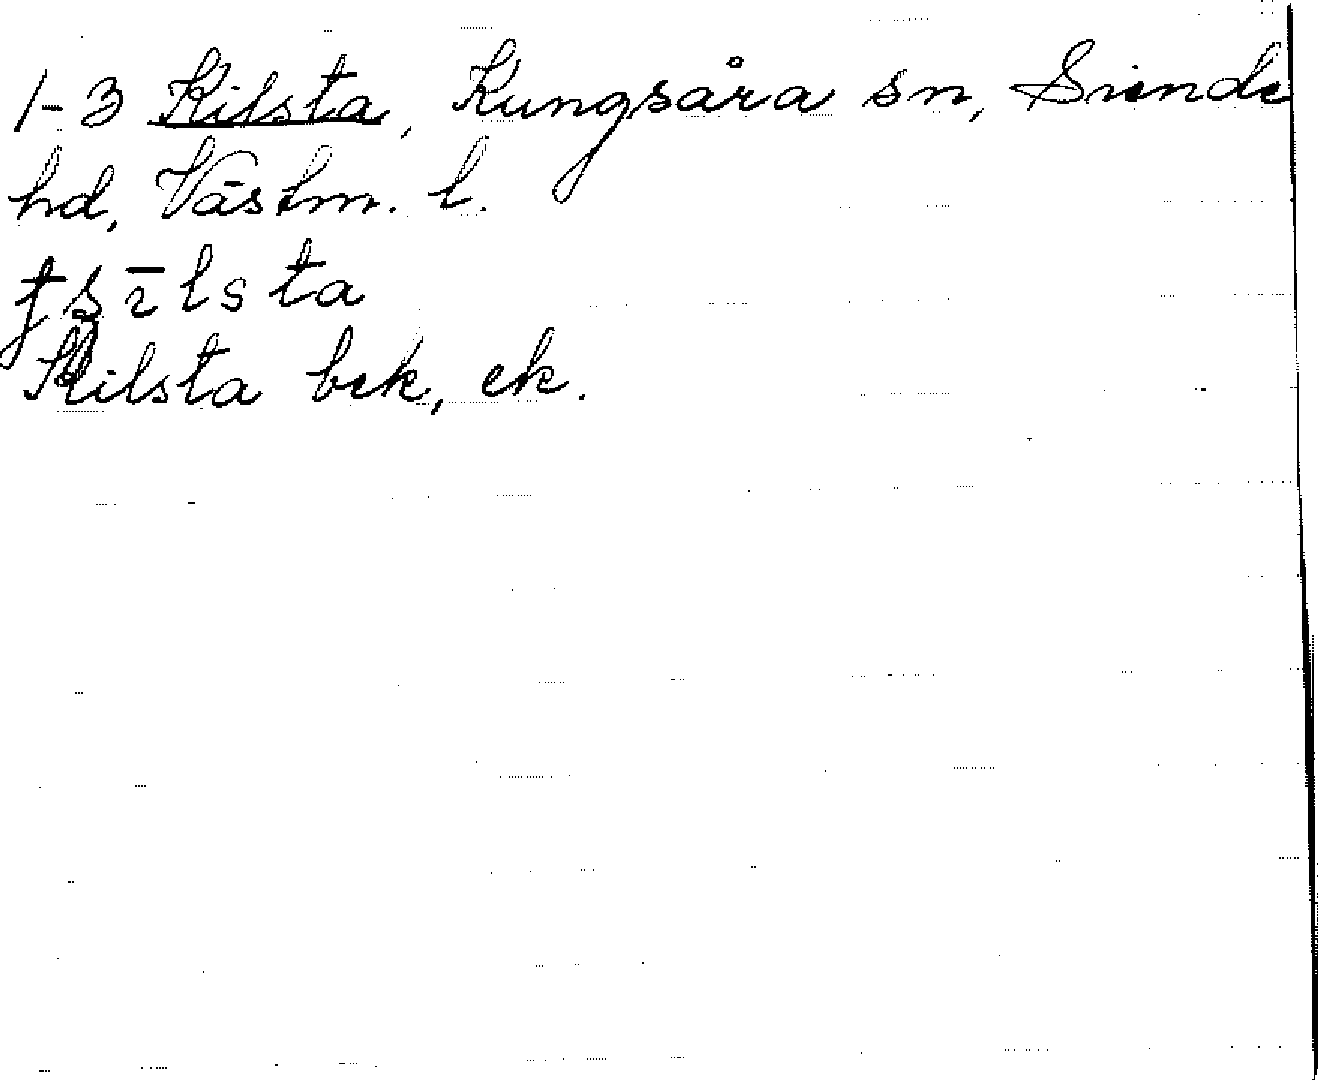 1-3 Kilsta, Kungsåra sn, Siende
hd, Västm. l.
Kilsta bek, ek.